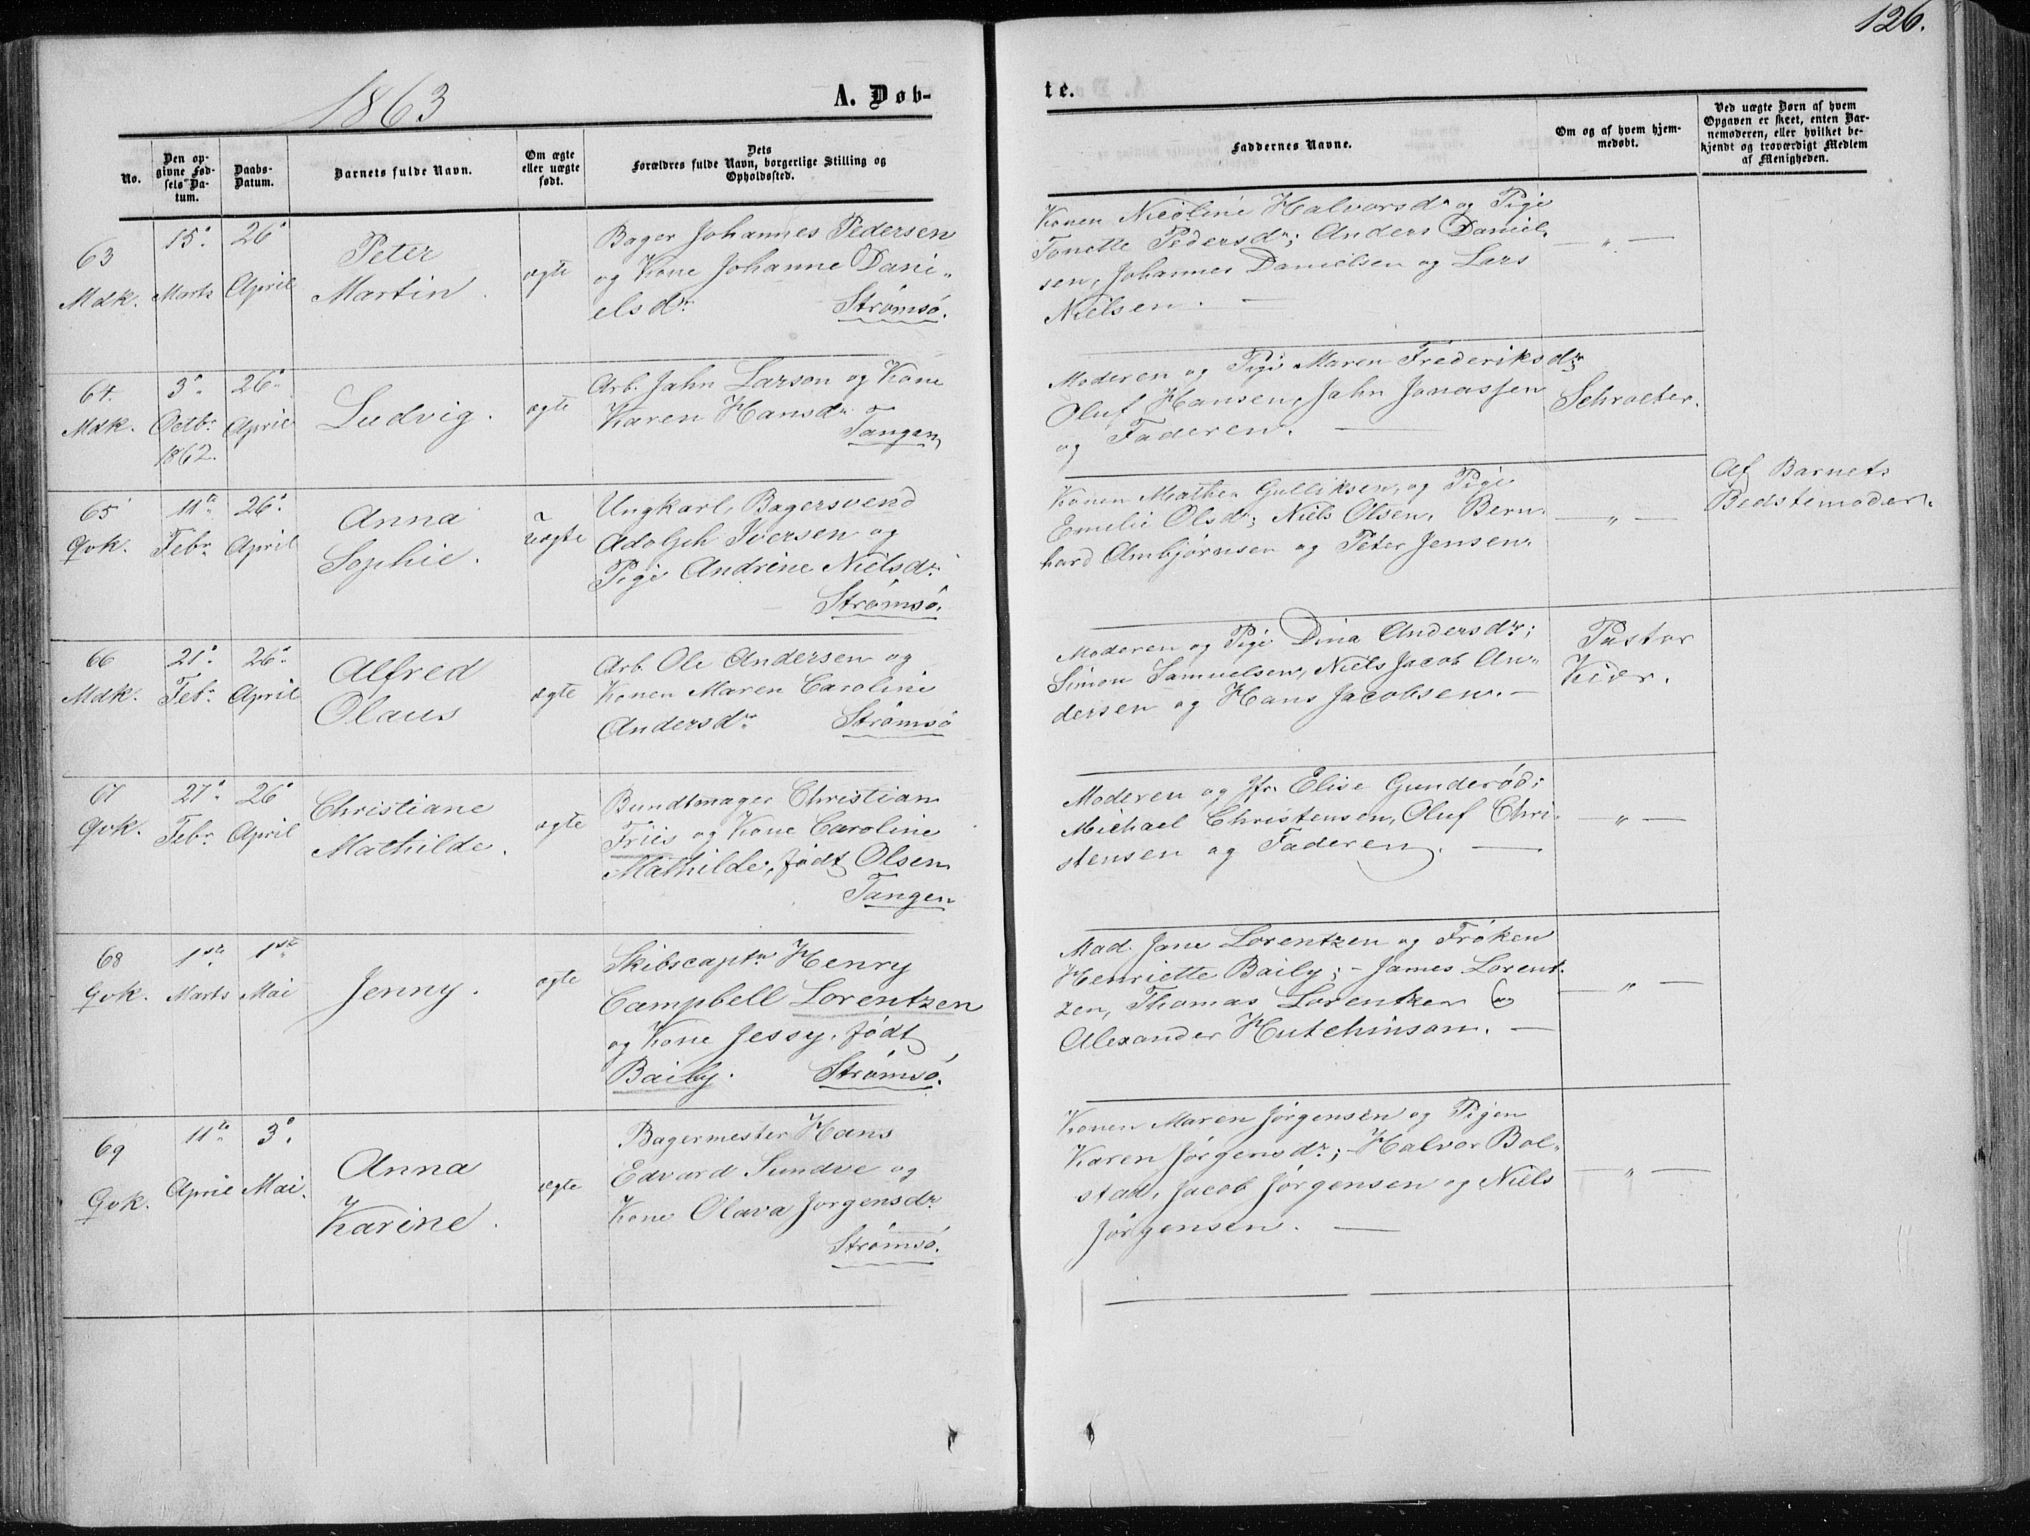 126.
1863
A. Døb-
te.
No.
Den op-
givne Fød-
sels Da-
tum.
Daabs-
Datum.
Barnets fulde Navn.
Om ægte
eller uægte
født.
Dets
Forældres fulde Navn, borgerlige Stilling og
Opholdssted.
Faddernes Navne.
Om og af hvem hjem-
medøbt.
Ved uægte Børn af hvem
Opgaven er skeet, enten Bar-
nemoderen, eller hvilket be-
kjendt og troværdigt Medlem
af Menigheden.
63
Mdk.
15de
Marts
26de
April
Peter
Martin.
ægte
Bager Johannes Pedersen
og Kone Johanne Dani-
elsdr.
Strømsö.
Konen Nicoline Halvorsdr og Pige
Tonette Pedersdr; Anders Daniel-
sen, Johannes Danielsen og Lars
Nielsen. —
— " —
64.
Mdk.
3de
Octbr.
1862.
26de
April
Ludvig.
ægte
Arb. Jahn Larson og Kone
Karen Hansdr.
Tangen
Moderen og Pige Maren Frederiksdr;
Oluf Hansen, Jahn Jonassen
og Faderen. —
Schroeter.
65
Qvk.
11te
Febr.
26de
April
Anna
Sophie.
uægte
Ungkarl, Bagersvend
Adolph Iversen og
Pige Andrine Nielsdr.
Strømsö.
Konen Mathea Gulliksen, og Pige
Emelie Olsdr; Niels Olsen, Bern-
hard Ambjørnsen og Peter Jensen.
— " —
Af Barnets
Bedstemoder.
66
Mdk.
21de
Febr.
26de
April
Alfred
Olaus
ægte
Arb. Ole Andersen og
Konen Maren Caroline
Andersdr.
Strømsö
Moderen og Pige Dina Andersdr;
Simon Samuelsen, Niels Jacob An-
dersen og Hans Jacobsen. —
Pastor
Kiær.
67
Qvk.
27de
Febr.
26de
April
Christiane
Mathilde.
ægte
Bundtmager Christian
Friis og Kone Caroline
Mathilde, født Olsen
Tangen
Moderen og Jfr. Elise Gunderød;
Michael Christensen, Oluf Chri-
stensen og Faderen. —
— " —
68
Qvk.
1ste
Marts
1ste
Mai
Jenny.
ægte
Skibscaptn Henry
Campbell Lorentzen
og Kone Jessy, født
Baily.
Strømsö.
Mad. Jane Lorentzen og Frøken
Henriette Baily; – James Lorent-
zen, Thomas Lorentzen og
Alexander Hutchinson. —
— " —
69
Qvk.
11te
April
3de
Mai.
Anna
Karine.
ægte
Bagermester Hans
Edvard Sundve og
Kone Olava Jørgensdr.
Strømsö.
Konen Maren Jørgensen og Pigen
Karen Jørgensdr; – Halvor Bol-
stad, Jacob Jørgensen og Niels
Jørgensen. —
— " —